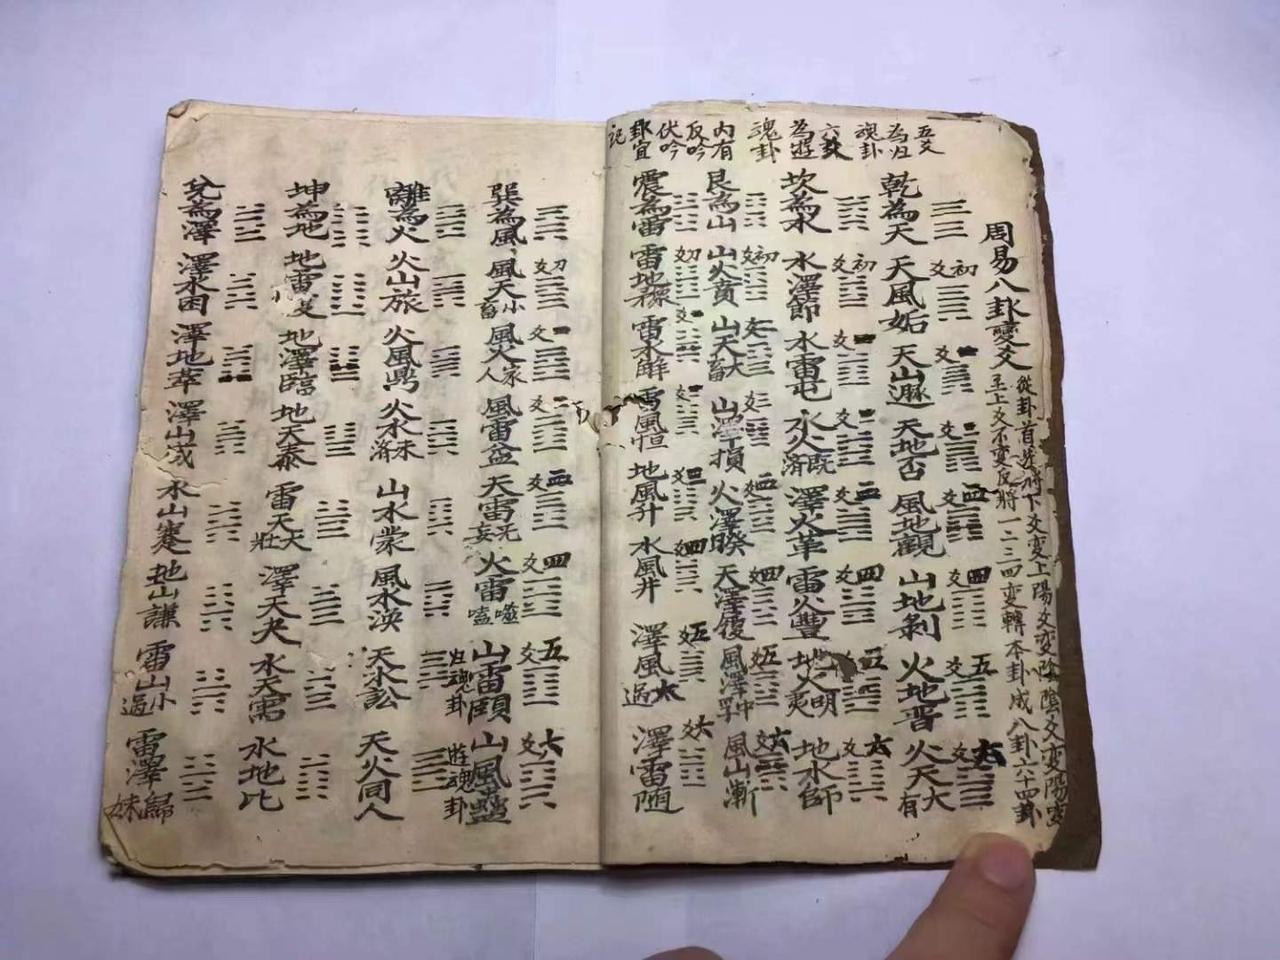 周易八卦變爻
從卦首並將下爻變上陽爻變陰陰爻變陽變
至上爻不變反將一二三四變轉本卦成八卦六十四卦
五爻
為归
魂卦
六爻
為遊
魂卦
內有
反吟
伏吟
卦宜
記
乾為天 天風姤 天山遯 天地否 風地觀 山地剝 火地晋 火天大有
初爻 二爻 三爻 四爻 五爻 六爻
坎為水 水澤節 水雷屯 水火既濟 澤火革 雷火豐 地火明夷 地水師
初爻 一爻 二爻 三爻 四爻 五 六爻
艮為山 山火賁 山天大畜 山澤損 火澤睽 天澤履 風澤中孚 風山漸
初爻 一爻 二爻 三爻 四爻 五爻 六爻
震為雷 雷地豫 雷水解 雷風恒 地風升 水風井 澤風大過 澤雷随
初爻 二爻 三爻 四爻 五爻 六爻
巽為風 風天小畜 風火家人 風雷益 天雷无妄 火雷噬嗑 山雷頤 山風蠱
初爻 一爻 二爻 三爻 四爻 五爻 六爻
归魂卦 遊魂卦
離為火 火山旅 火風鼎 火水未濟 山水蒙 風水渙 天水訟 天火同人
坤為地 地雷复 地澤臨 地天泰 雷天大壯 澤天夬 水天需 水地比
兌為澤 澤水困 澤地萃 澤山咸 水山蹇 地山謙 雷山小過 雷澤歸妹